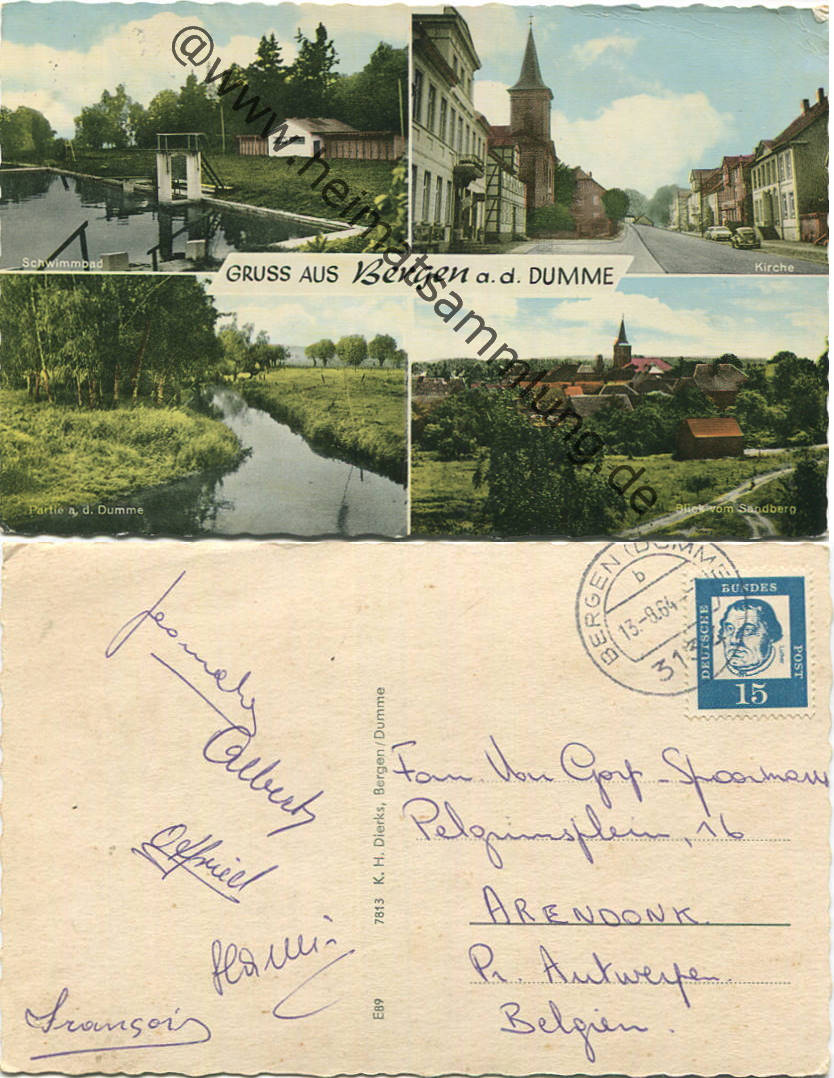 Schwimmbad
Kirche
GRUSS AUS Bergen a.d. DUMME
Partie a. d. Dumme
Blick vom Sandberg
@www.heimatsammlung.de
BERGEN (DUMME)
b
13.-8.64
DEUTSCHE BUNDES POST
Luther
15
Albert
Otfried
François
E89 7813 K. H. Dierks, Bergen/Dumme
Fam. Van Gorp-Spoormans
Pelgrimsplein, 16
ARENDONK.
Pr. Antwerpen.
Belgien.